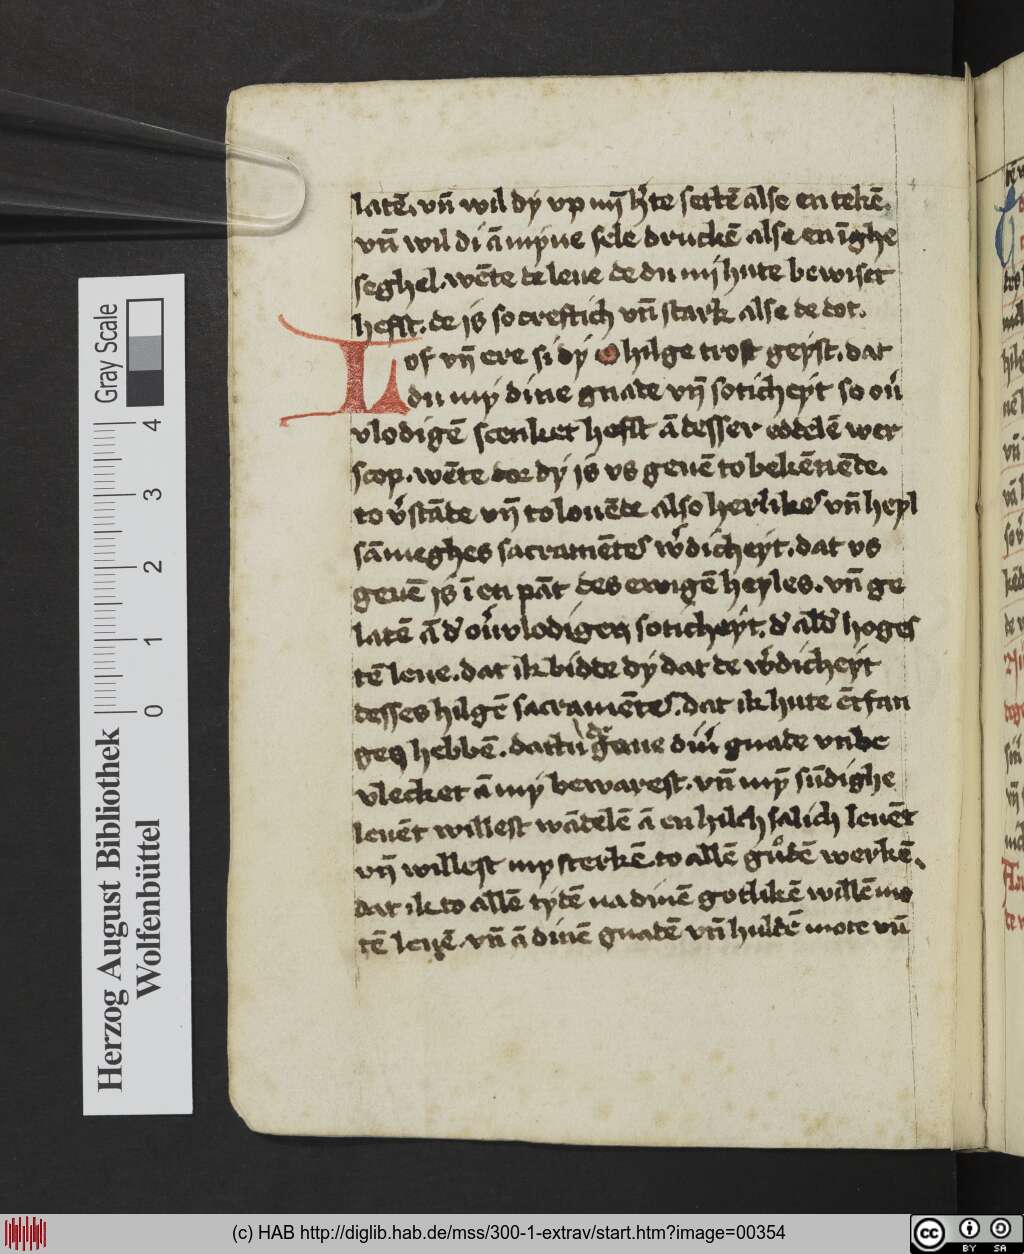 latē. vn̄ wil dy vp mȳ h'te settē alse en tekē.
vn̄ wil di ā myne sele druckē alse en īghe
seghel. wēte de leue de du mȳ hute bewiset
hefst. de is so creftich vn̄ stark alse de dot.
Lof vn̄ ere si dy O hilge trost geyst. dat
du my dine gnade vn̄ soticheyt so ou'
vlodigē scenket hefst ā desser eddelē wer
scop. wēte dor dy is vs geuē to bekēnēde.
to v'stāde vn̄ to louēde also herlikes vn̄ heyl
sāmeghes sacramētes w'dicheyt. dat vs
geuē is ī en pāt des ewigē heyles. vn̄ ge
latē ā d' ou'vlodigen soticheyt. d' ald' hoges
tē leue. dat ik bidde dy dat de w'dicheyt
desses hilgē sacramētes. dat ik hute ētfan
gen hebbē. dattu de gaue diner gnade vnbe
vlecket ā my bewarest. vn̄ mȳ sūdighe
leuēt willest wādelē ā en hilch salich leuēt
vn̄ willest my sterkē to allē gudē werkē.
dat ik to allē tydē na dinē gotlikē willē mo
tē leuē. vn̄ ā dinē gnadē vn̄ huldē mote vū
Gray Scale
4
3
2
1
0
Herzog August Bibliothek
Wolfenbüttel
(c) HAB http://diglib.hab.de/mss/300-1-extrav/start.htm?image=00354
cc BY SA